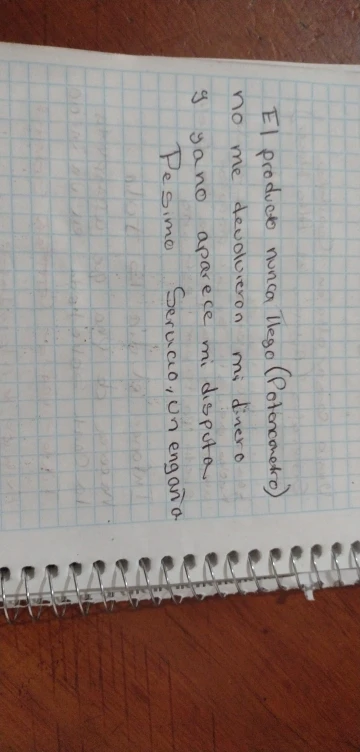 El producto nunca llego (Potenciometro)
no me devolvieron mi dinero
y ya no aparece mi disputa,
Pesimo Servicio, un engaño